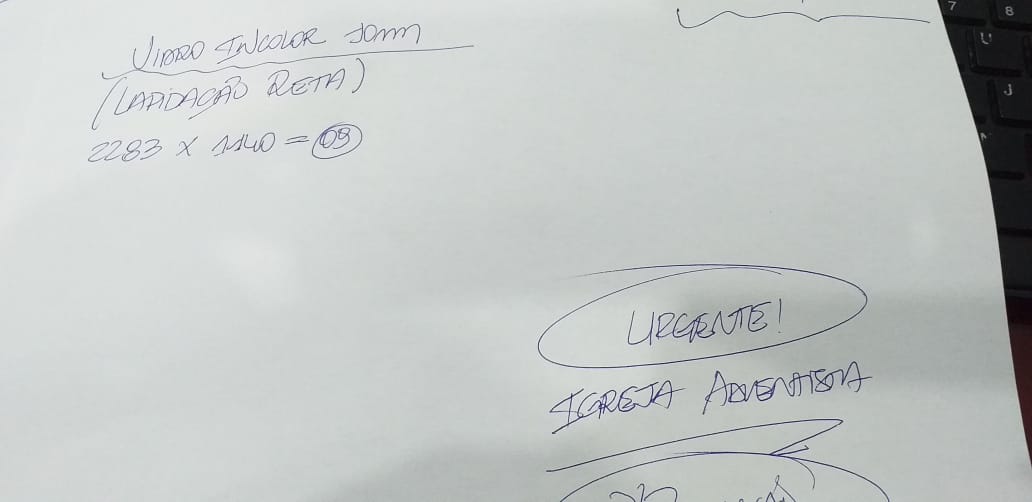 VIDRO INCOLOR 10mm
(LAPIDAÇÃO RETA)
2283 x 1140 = 09
URGENTE!
IGREJA ADVENTISTA